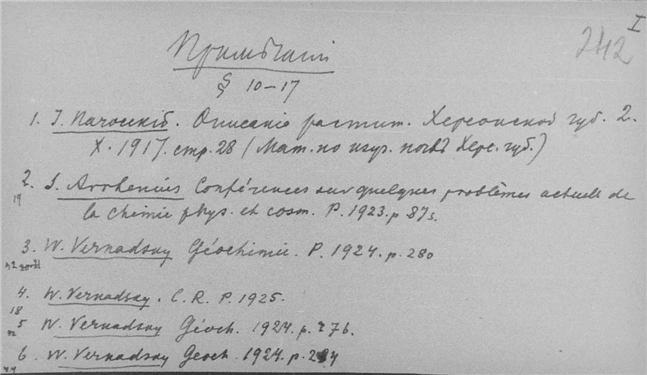 I
242
Примѣчанія
§ 10–17
1. І. Пачоскій. Описаніе растит. Херсонской губ. 2.
X. 1917. стр. 28 (Мат. по изуч. почвъ Херс. губ.)
2. S. Arrhenius Conférences sur quelques problèmes actuels de
19
la chimie phys. et cosm. P. 1923. p 87s.
3. W. Vernadsky Géochimie. P. 1924. p. 280
4. W. Vernadsky. C. R. P. 1925.
18
5 W. Vernadsky Géoch. 1924. p. 276.
6. W. Vernadsky Geoch. 1924. p.